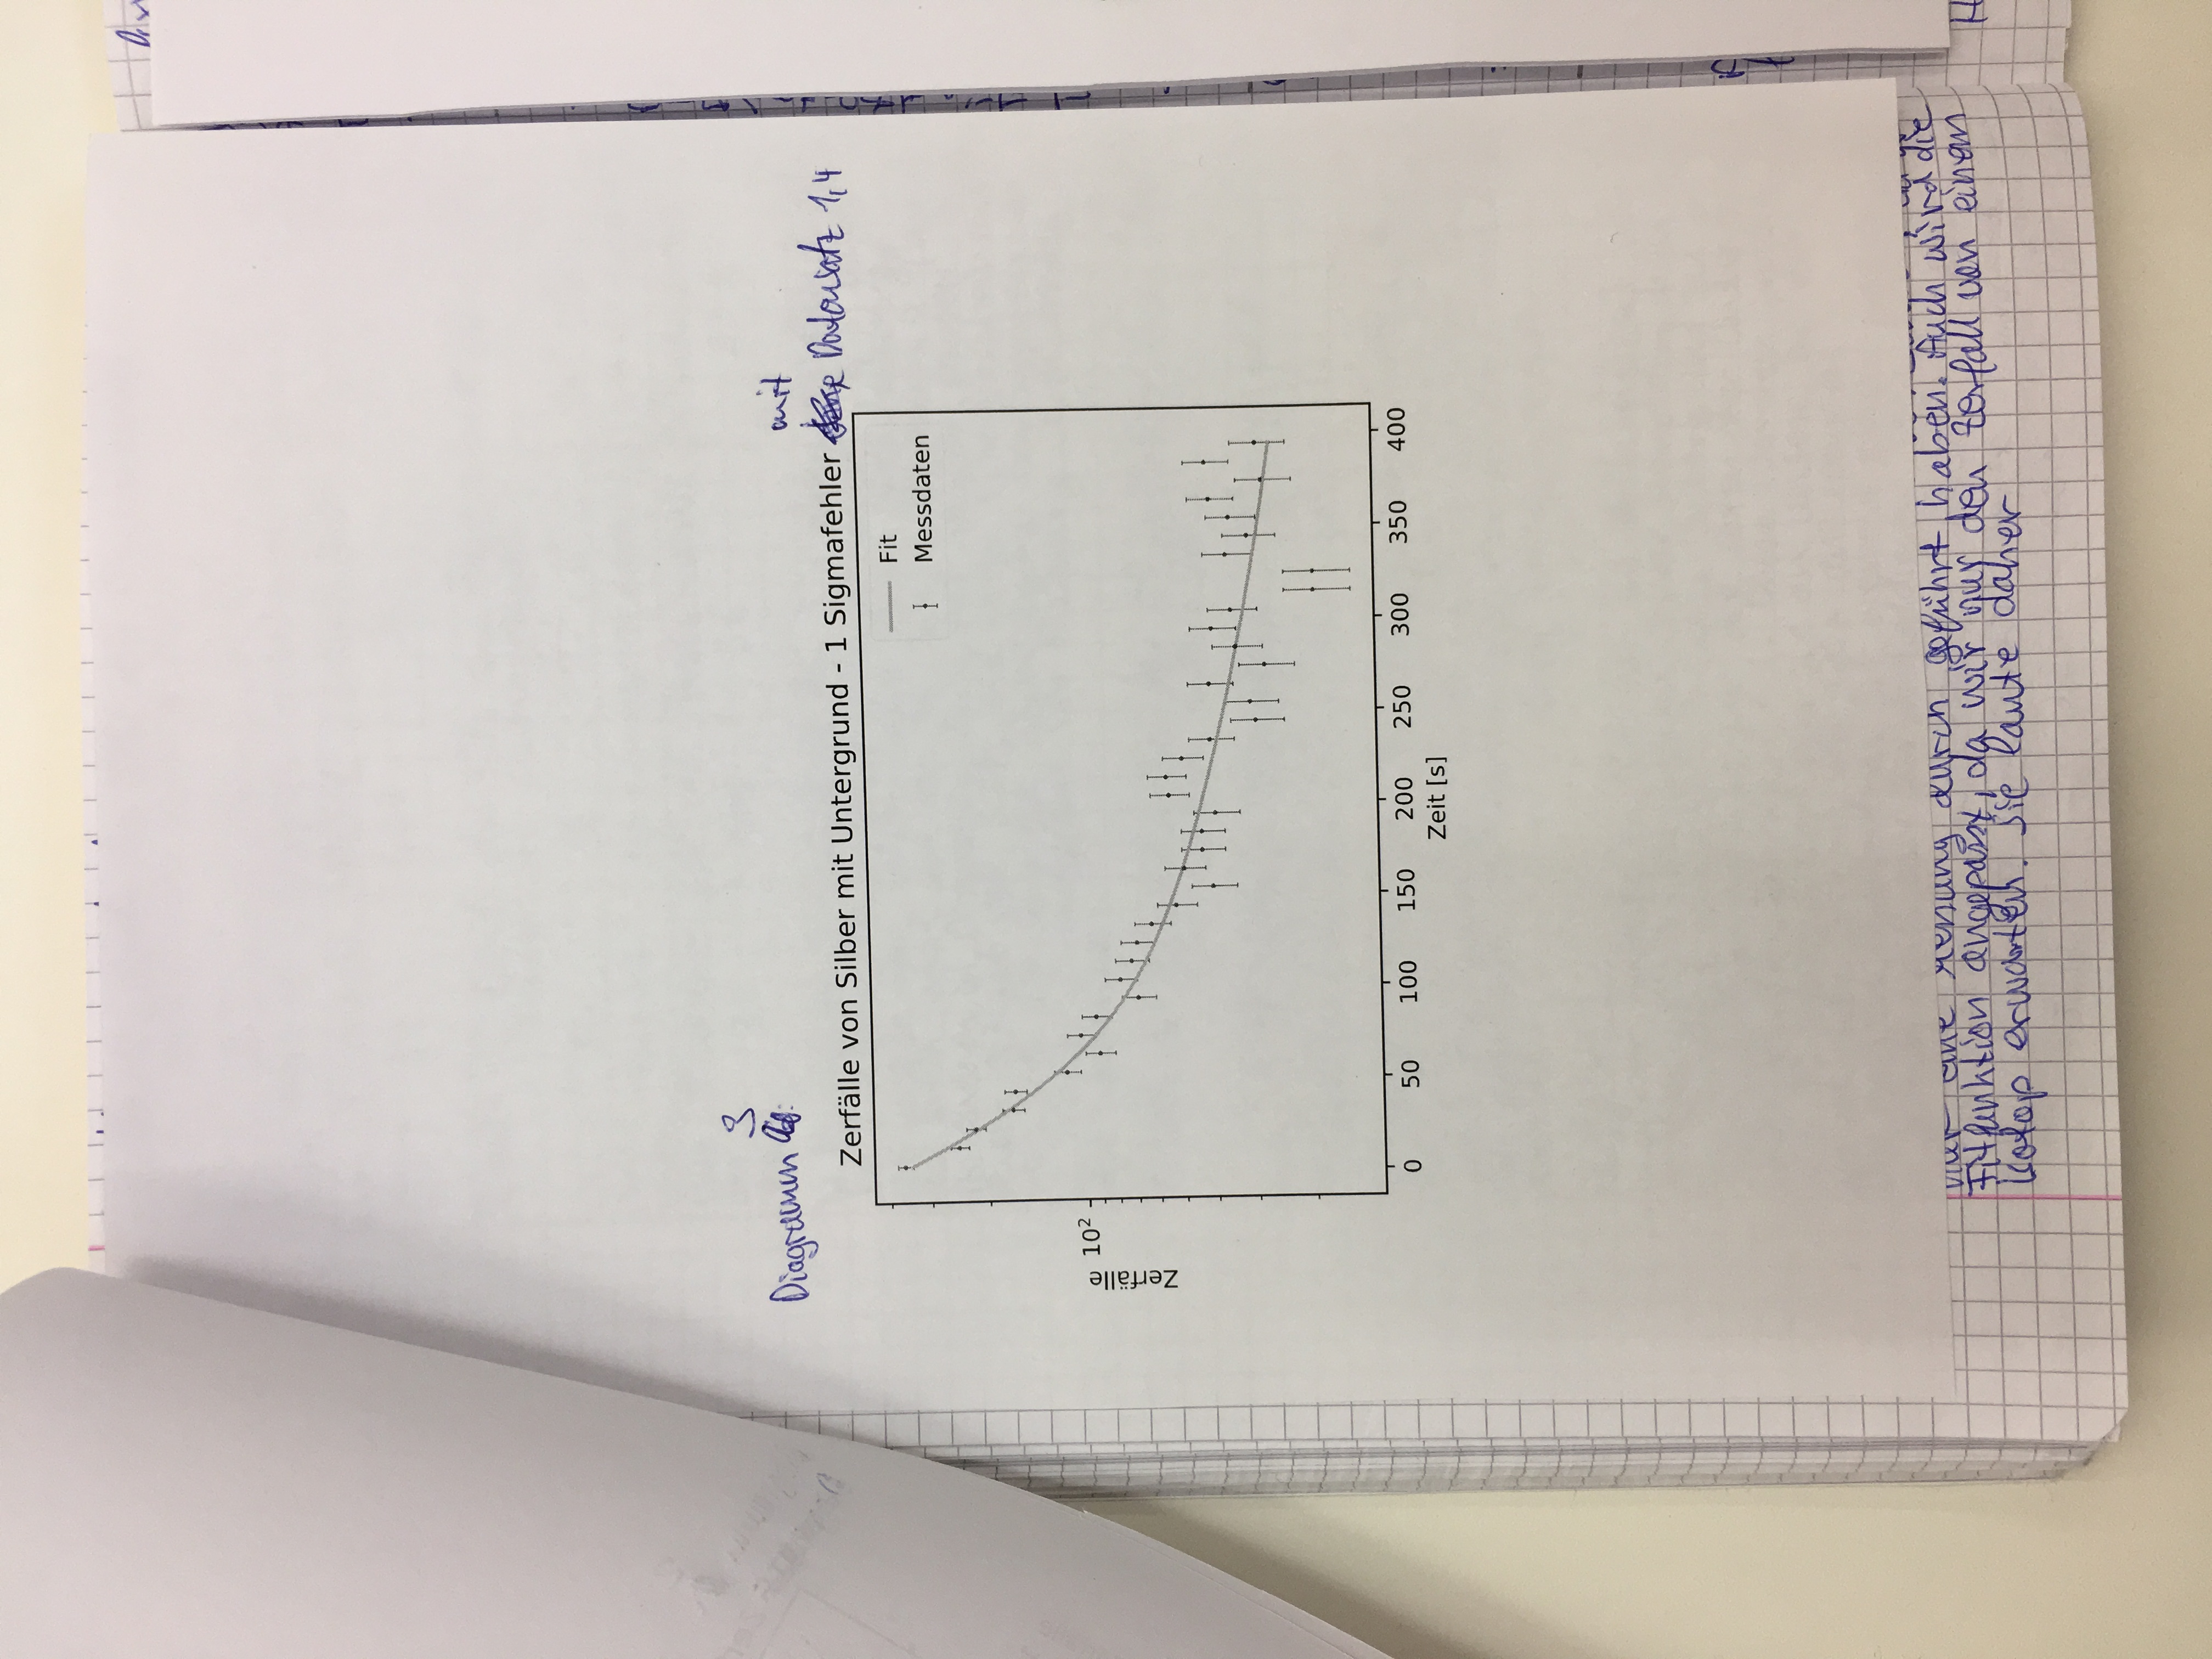 3
Diagramm
mit
Zerfälle von Silber mit Untergrund - 1 Sigmafehler Datensatz 1,4
Fit
Messdaten
Zerfälle
10²
0 50 100 150 200 250 300 350 400
Zeit [s]
nur eine Messung durch geführt haben. Auch wird die
Fitfunktion angepasst, da wir nur den Zerfall von einem
Isotop erwarten. Sie laute daher
H